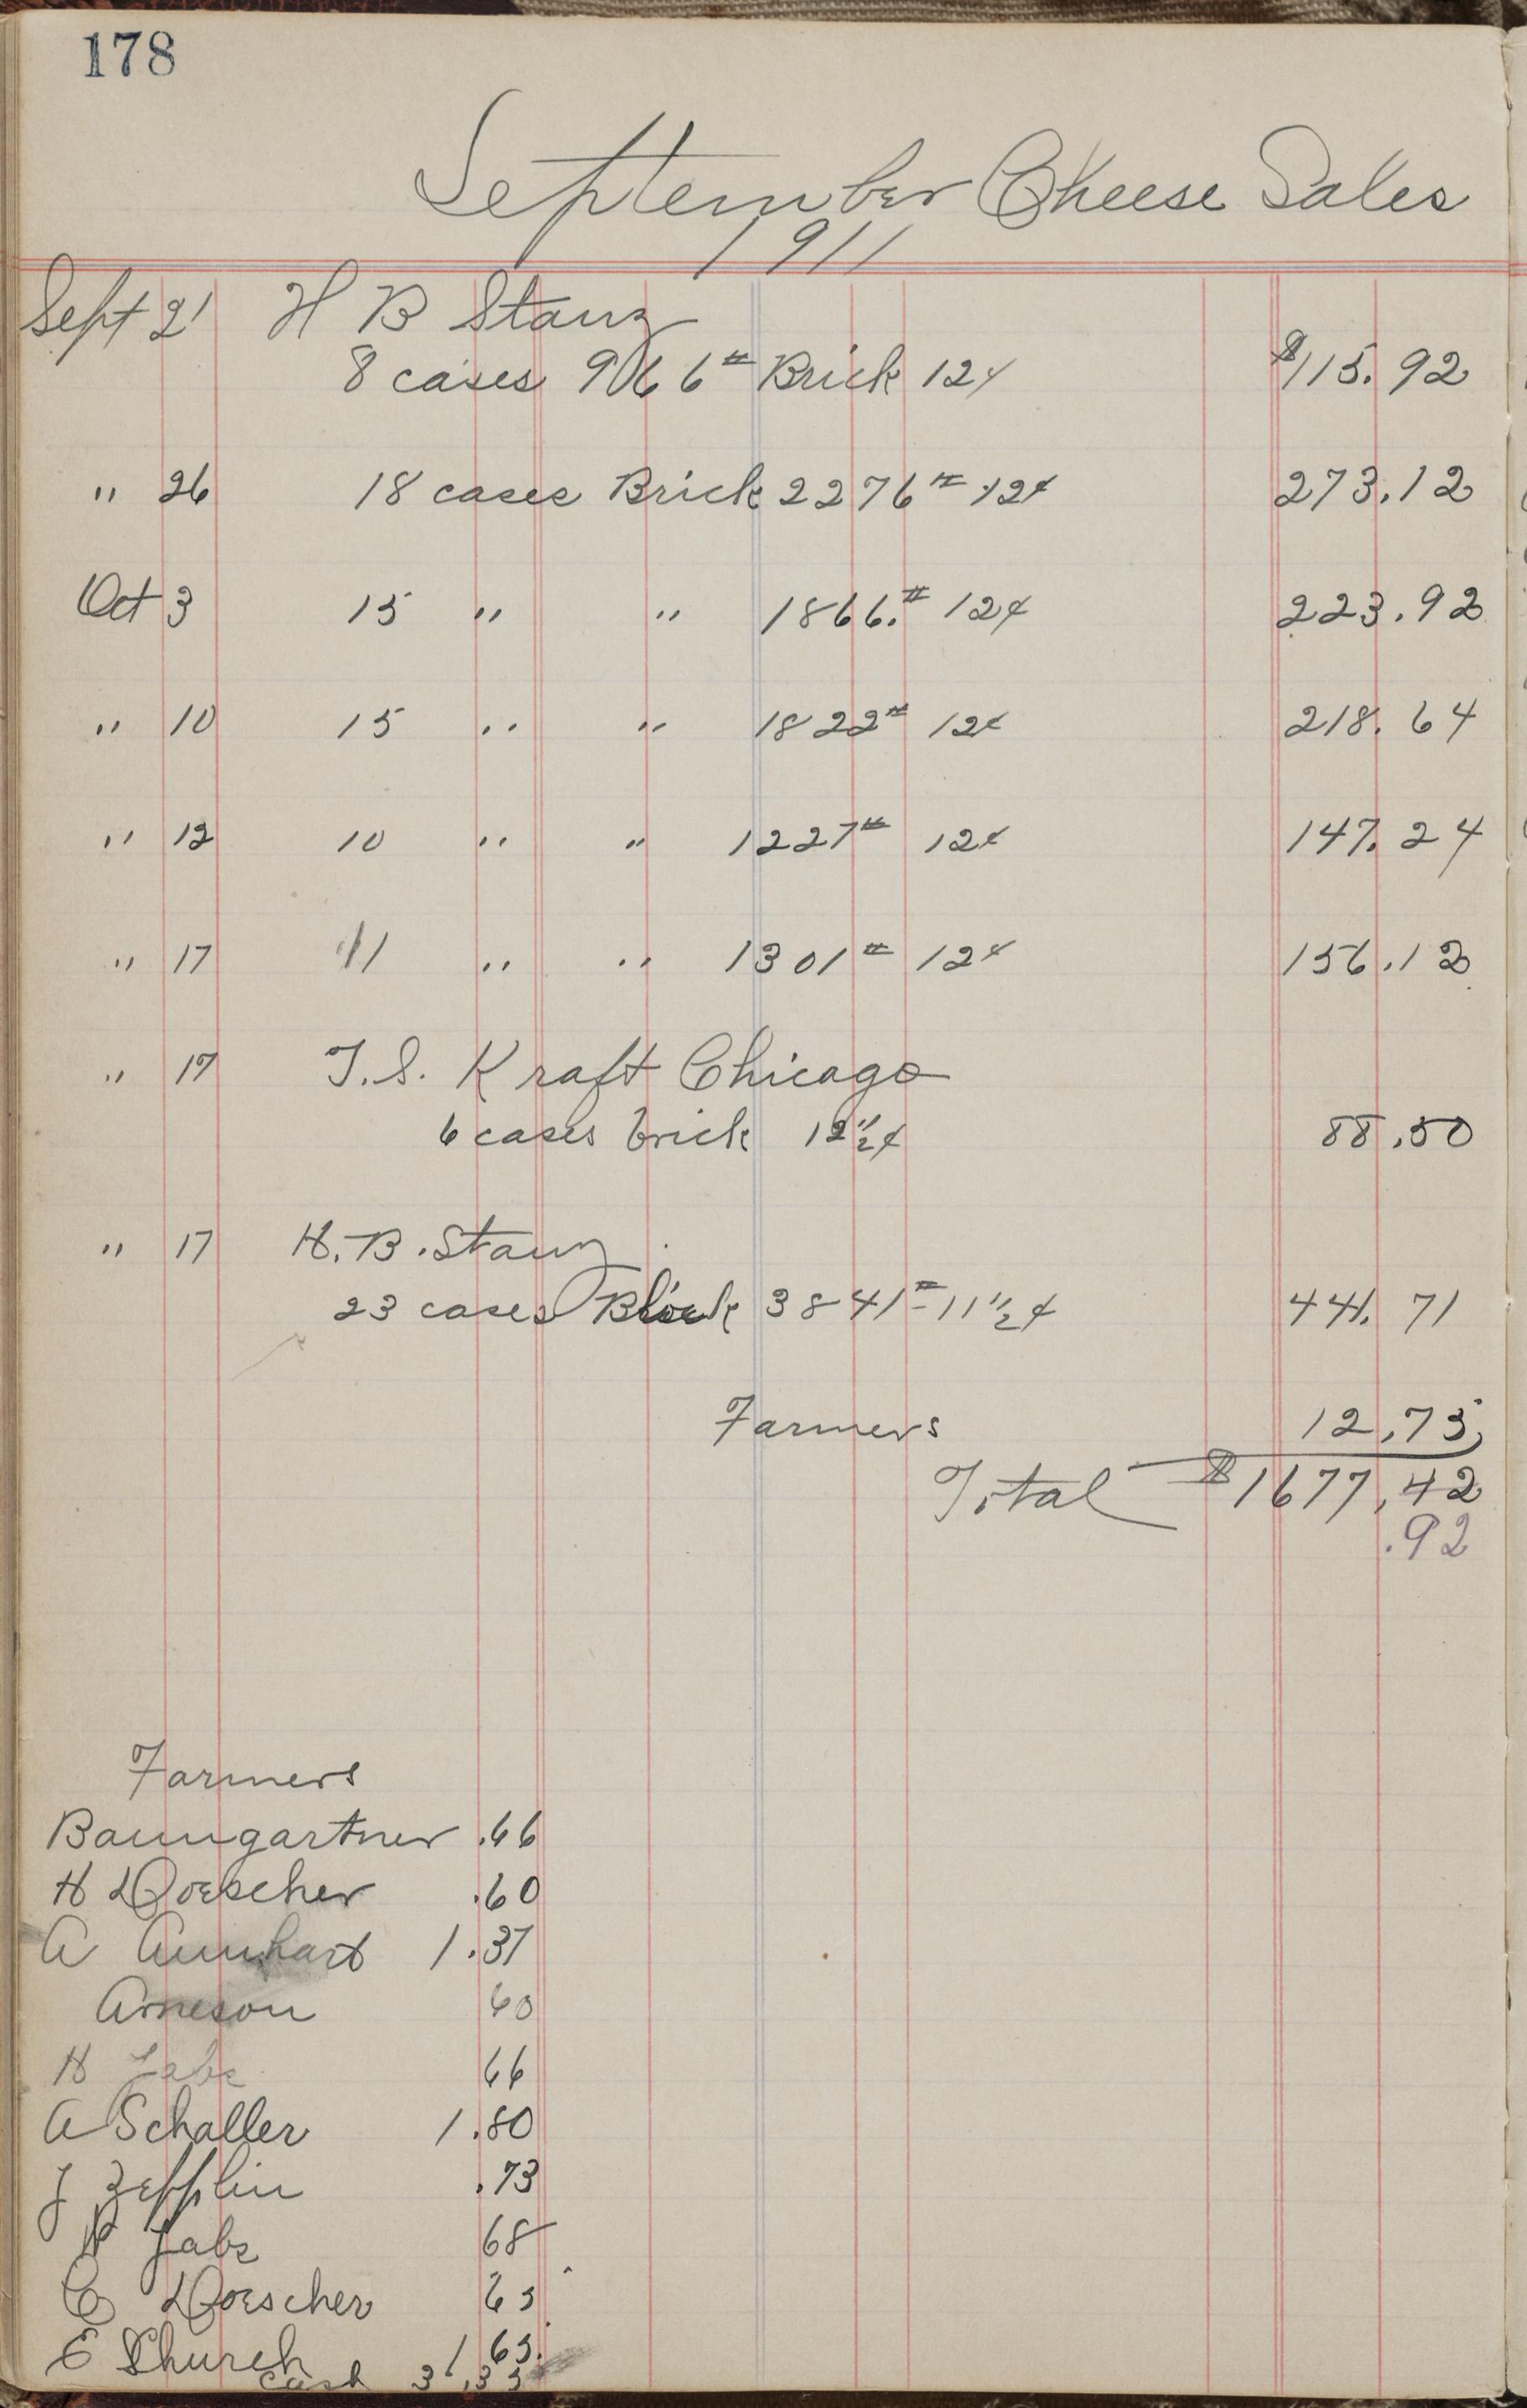 178
September Cheese Sales
1911
Sept 21 H B Stanz
8 cases 966# Brick 12¢ $115.92
" 26 18 cases Brick 2276# 12¢ 273.12
Oct 3 15 " " 1866.# 12¢ 223.92
" 10 15 " " 1822# 12¢ 218.64
" 12 10 " " 1227# 12¢ 147.24
" 17 11 " " 1301# 12¢ 156.12
" 17 J.S. Kraft Chicago
6 cases brick 12 1/2¢ 88.50
" 17 H.B. Stanz
23 cases 3841# 11 1/2¢ 441.71
Farmers 12.75
Total $1677.42
.92
Farmers
Baumgartner .66
H Doescher .60
A 1.37
Arneson 60
H Jabs 66
A Schaller 1.80
J Zepplin .73
Jabs 68
C Doescher 65
E Church 1 65
Cash 3.35